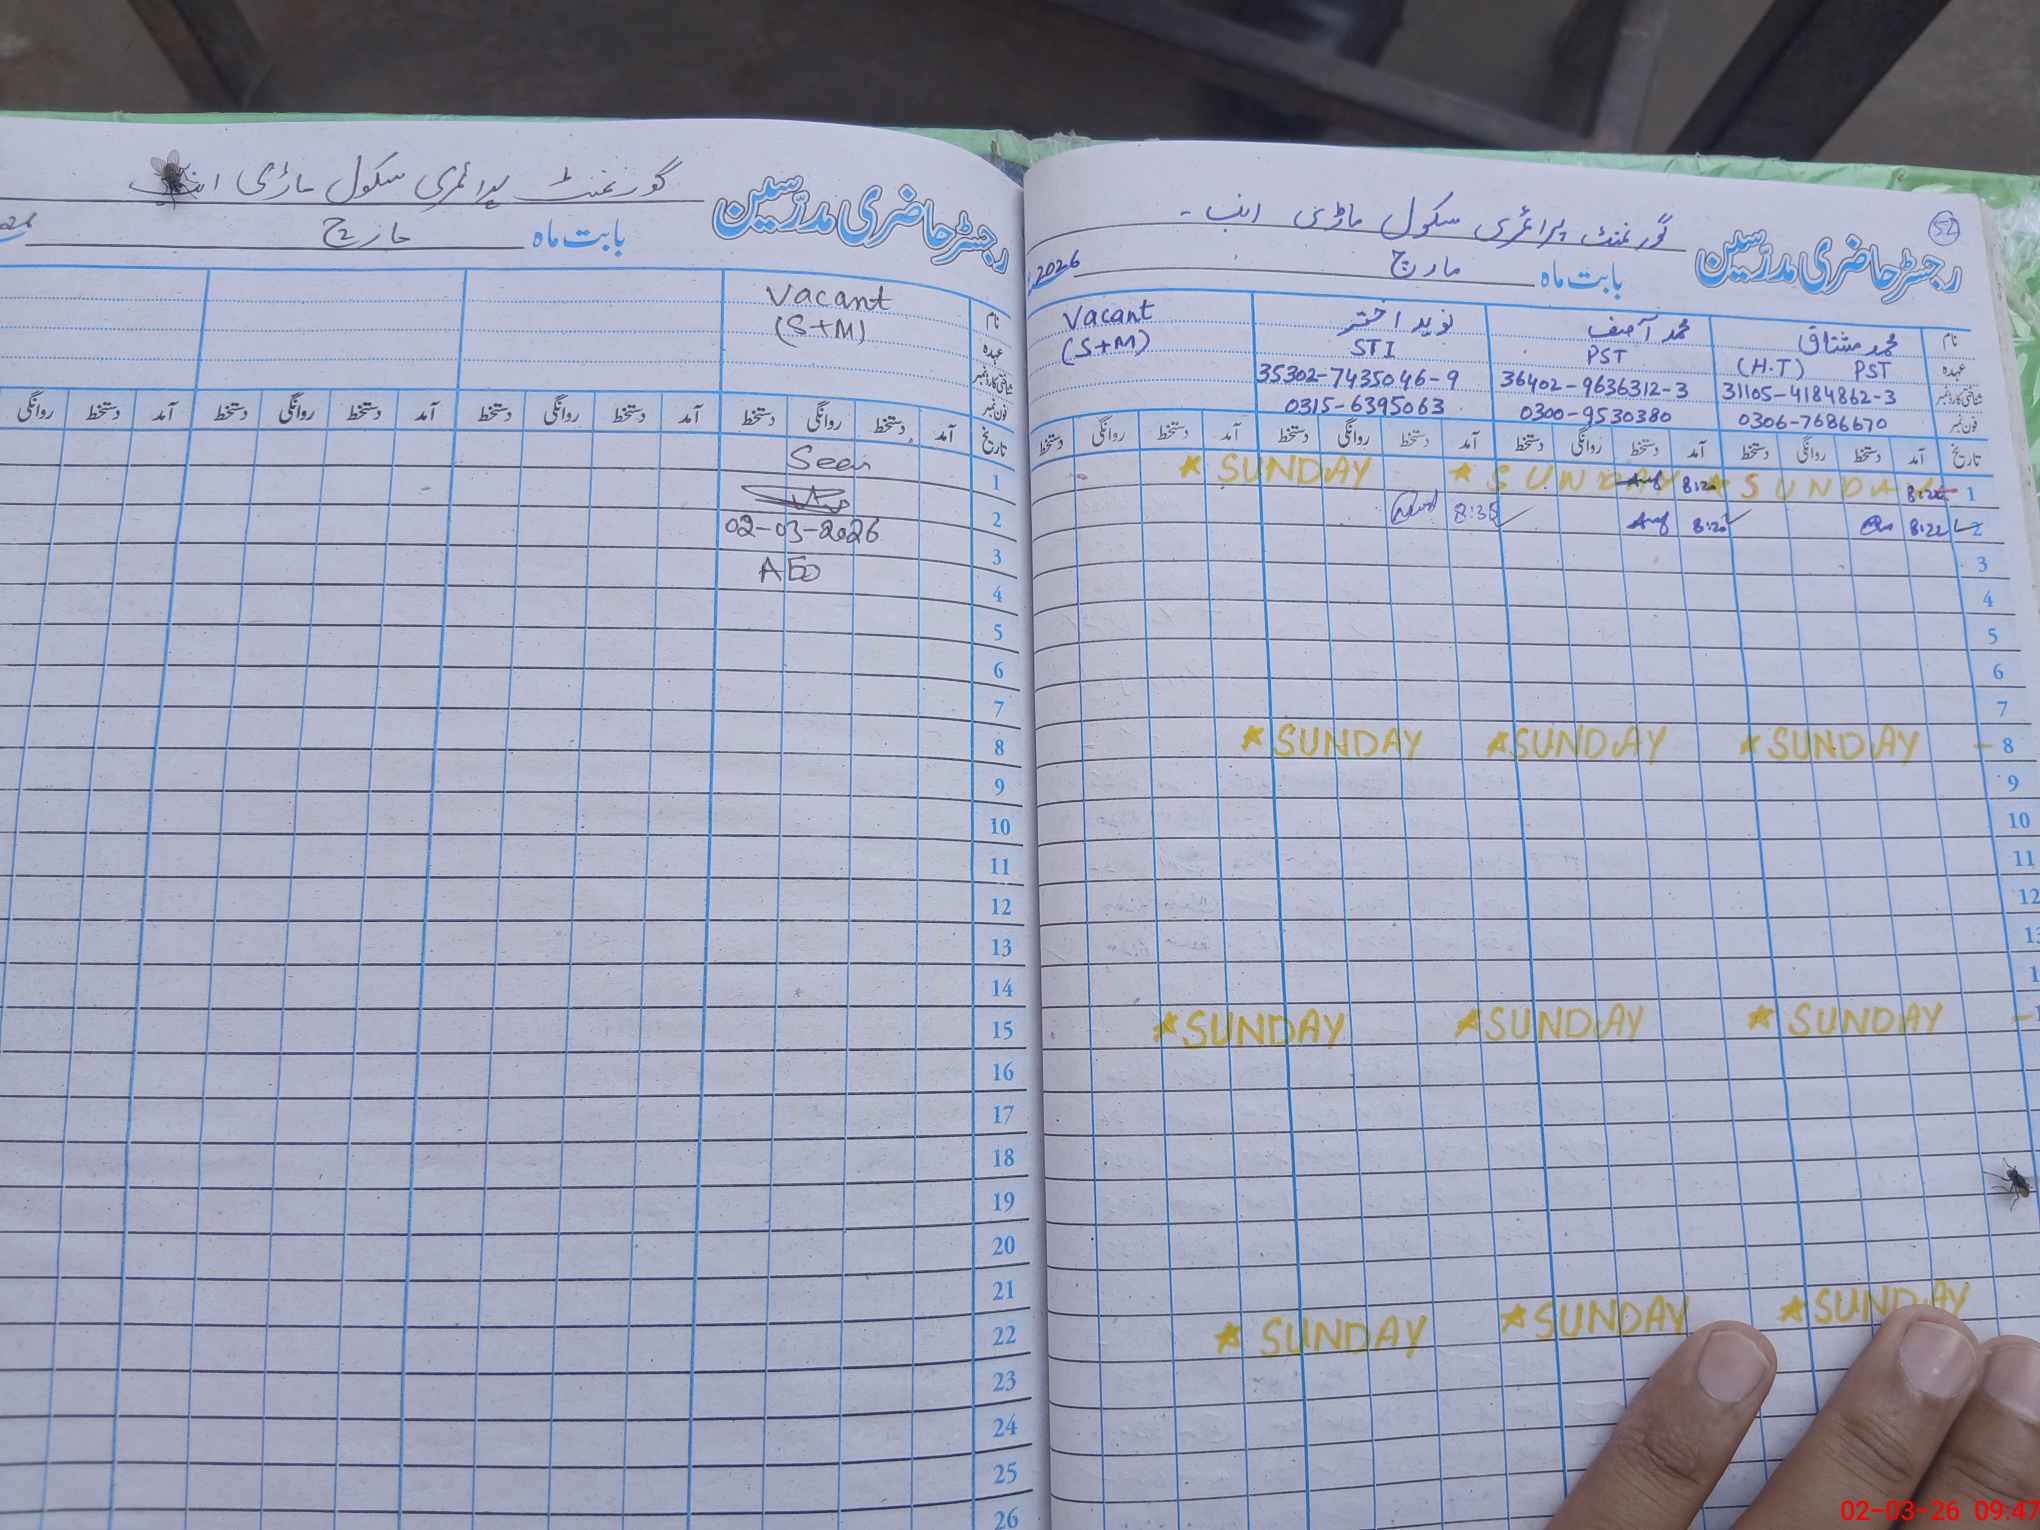 52
گورنمنٹ پرائمری سکول ماڑی
رجسٹر حاضری مدرسین
بابت ماہ مارچ 2026
نام محمد مشتاق محمد آصف نوید اختر Vacant
عہدہ PST (H.T) PST STI (S+M)
شناختی کارڈ نمبر 31105-4184862-3 36402-9636312-3 35302-7435046-9
فون نمبر 0306-7686670 0300-9530380 0315-6395063
تاریخ آمد دستخط روانگی دستخط آمد دستخط روانگی دستخط آمد دستخط روانگی دستخط آمد دستخط روانگی دستخط
1 SUNDAY SUNDAY SUNDAY
2 8:22 8:20 8:35
3
4
5
6
7
8 SUNDAY SUNDAY SUNDAY
9
10
11
12
SUNDAY SUNDAY SUNDAY
SUNDAY SUNDAY SUNDAY
گورنمنٹ پرائمری سکول ماڑی
رجسٹر حاضری مدرسین
بابت ماہ مارچ
نام Vacant
عہدہ (S+M)
شناختی کارڈ نمبر
فون نمبر
تاریخ آمد دستخط روانگی دستخط آمد دستخط روانگی دستخط آمد دستخط روانگی دستخط آمد دستخط روانگی
1 Seen
2
3 02-03-2026
4 AEO
5
6
7
8
9
10
11
12
13
14
15
16
17
18
19
20
21
22
23
24
25
26
02-03-26 09:47